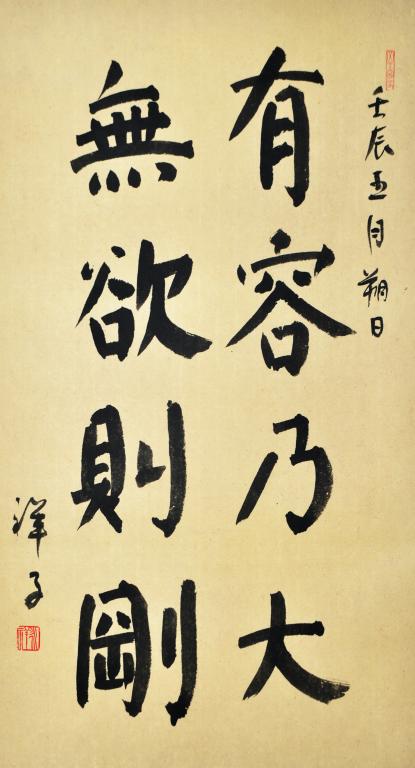 壬辰五月朔日
有容乃大
無欲則剛
洋子